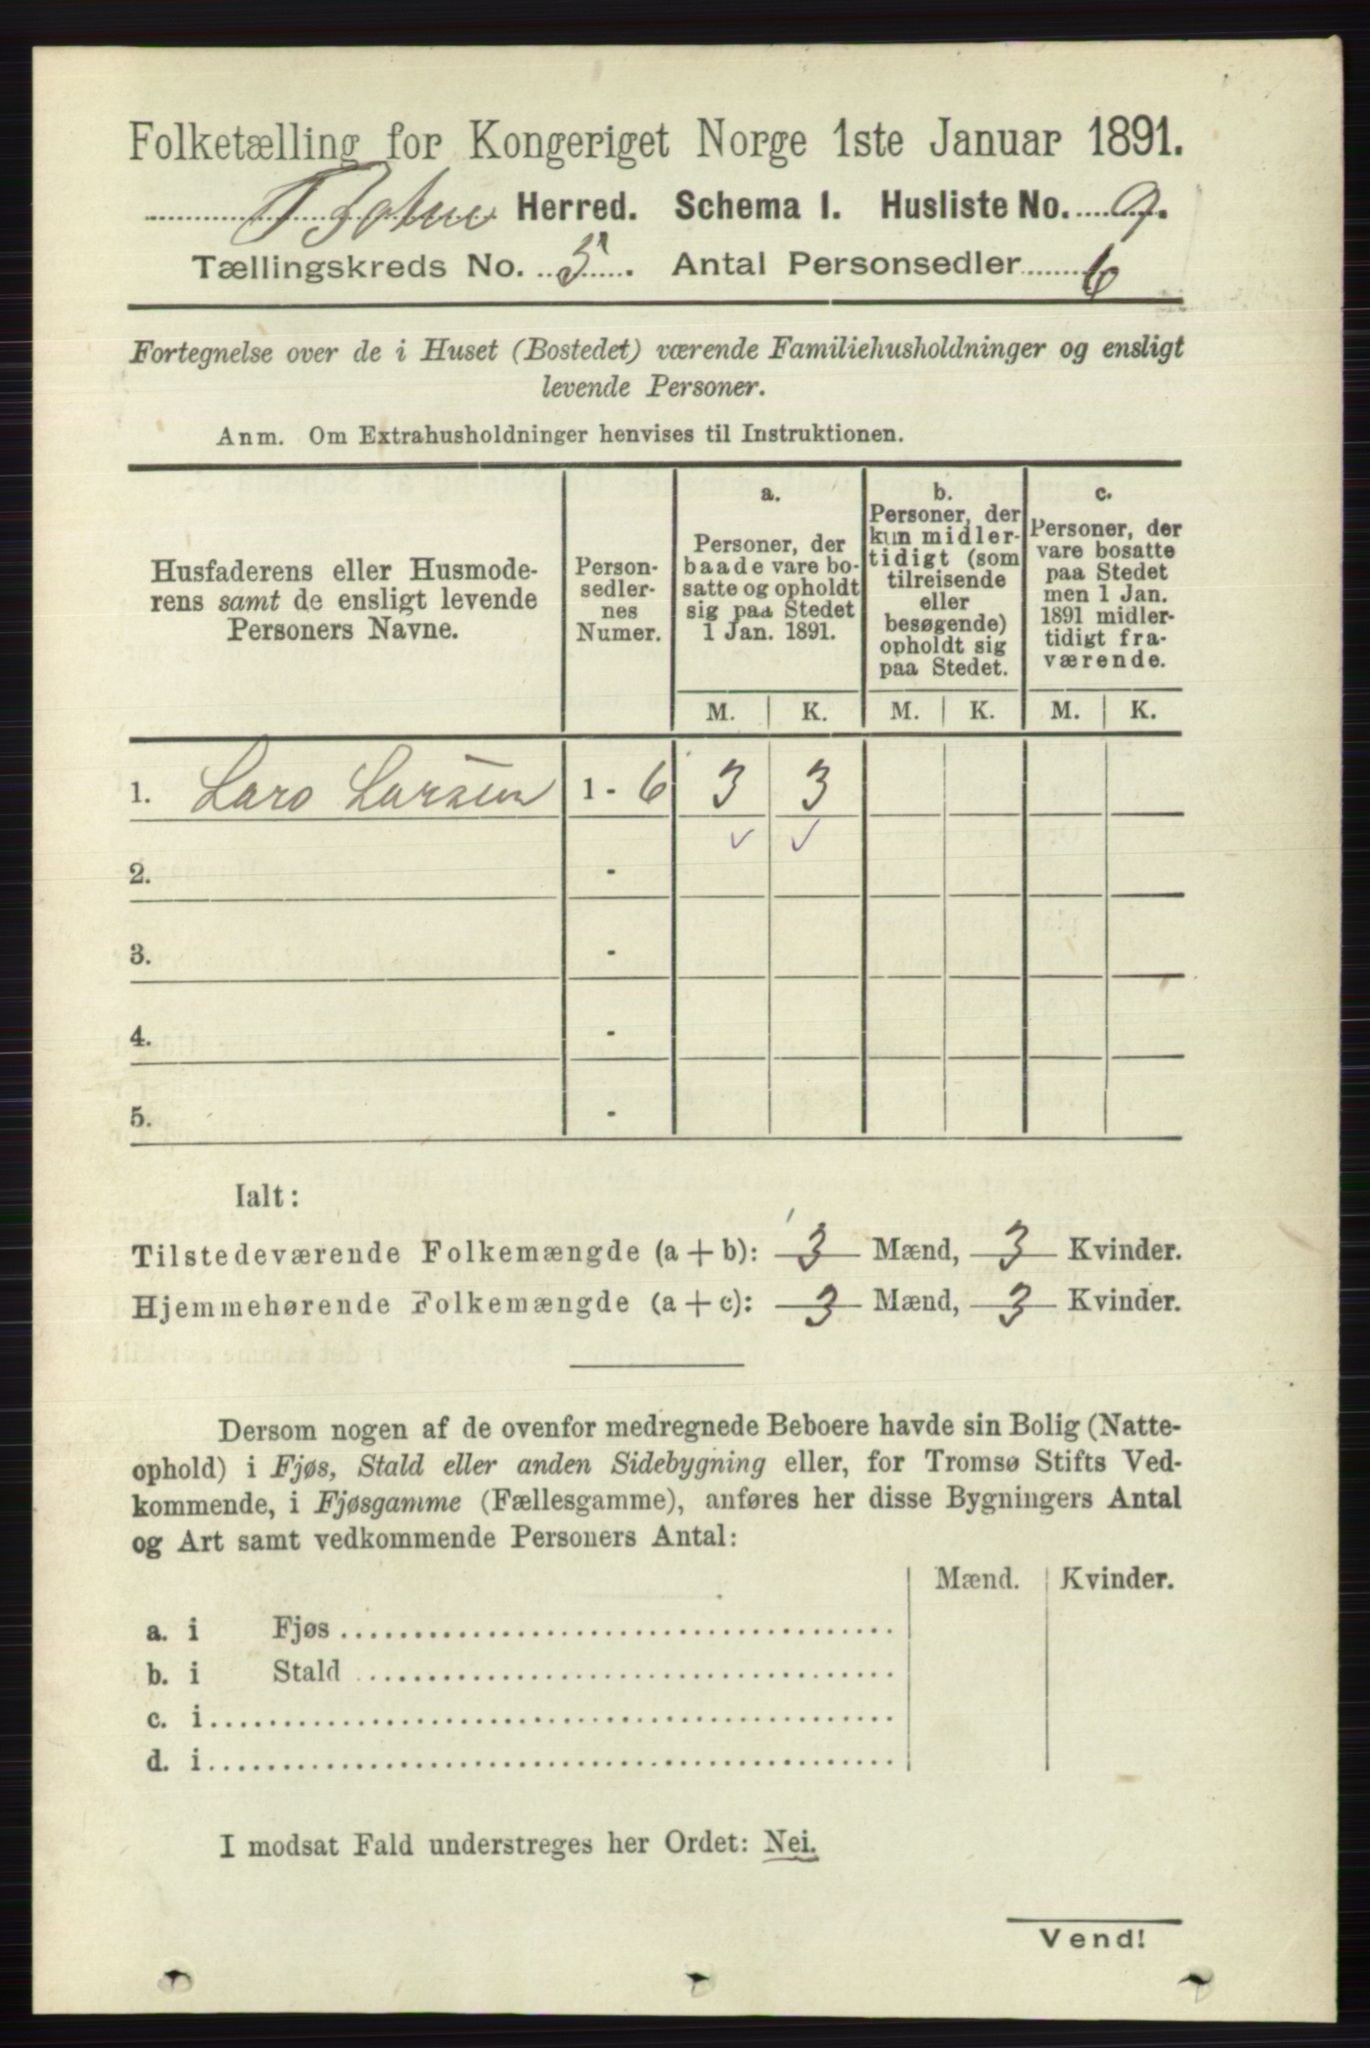 Folketælling for Kongeriget Norge 1ste Januar 1891.
Herred. Schema 1. Husliste No. 9.
Tællingskreds No. 5. Antal Personsedler 6
Fortegnelse over de i Huset (Bostedet) værende Familiehusholdninger og ensligt
levende Personer.
Anm. Om Extrahusholdninger henvises til Instruktionen.
Husfaderens eller Husmode-
rens samt de ensligt levende
Personers Navne.
Person-
sedler-
nes
Numer.
a.
Personer, der
baade vare bo-
satte og opholdt
sig paa Stedet
1 Jan. 1891.
b.
Personer, der
kun midler-
tidigt (som
tilreisende
eller
besøgende)
opholdt sig
paa Stedet.
c.
Personer, der
vare bosatte
paa Stedet
men 1 Jan.
1891 midler-
tidigt fra-
værende.
M. K. M. K. M. K.
1. Lars Larsen 1 - 6 3 3
2. -
3. -
4. -
5. -
Ialt:
Tilstedeværende Folkemængde (a + b): 3 Mænd, 3 Kvinder.
Hjemmehørende Folkemængde (a + c): 3 Mænd, 3 Kvinder.
Dersom nogen af de ovenfor medregnede Beboere havde sin Bolig (Natte-
ophold) i Fjøs, Stald eller anden Sidebygning eller, for Tromsø Stifts Ved-
kommende, i Fjøsgamme (Fællesgamme), anføres her disse Bygningers Antal
og Art samt vedkommende Personers Antal:
Mænd. Kvinder.
a. i Fjøs
b. i Stald
c. i
d. i
I modsat Fald understreges her Ordet: Nei.
Vend!